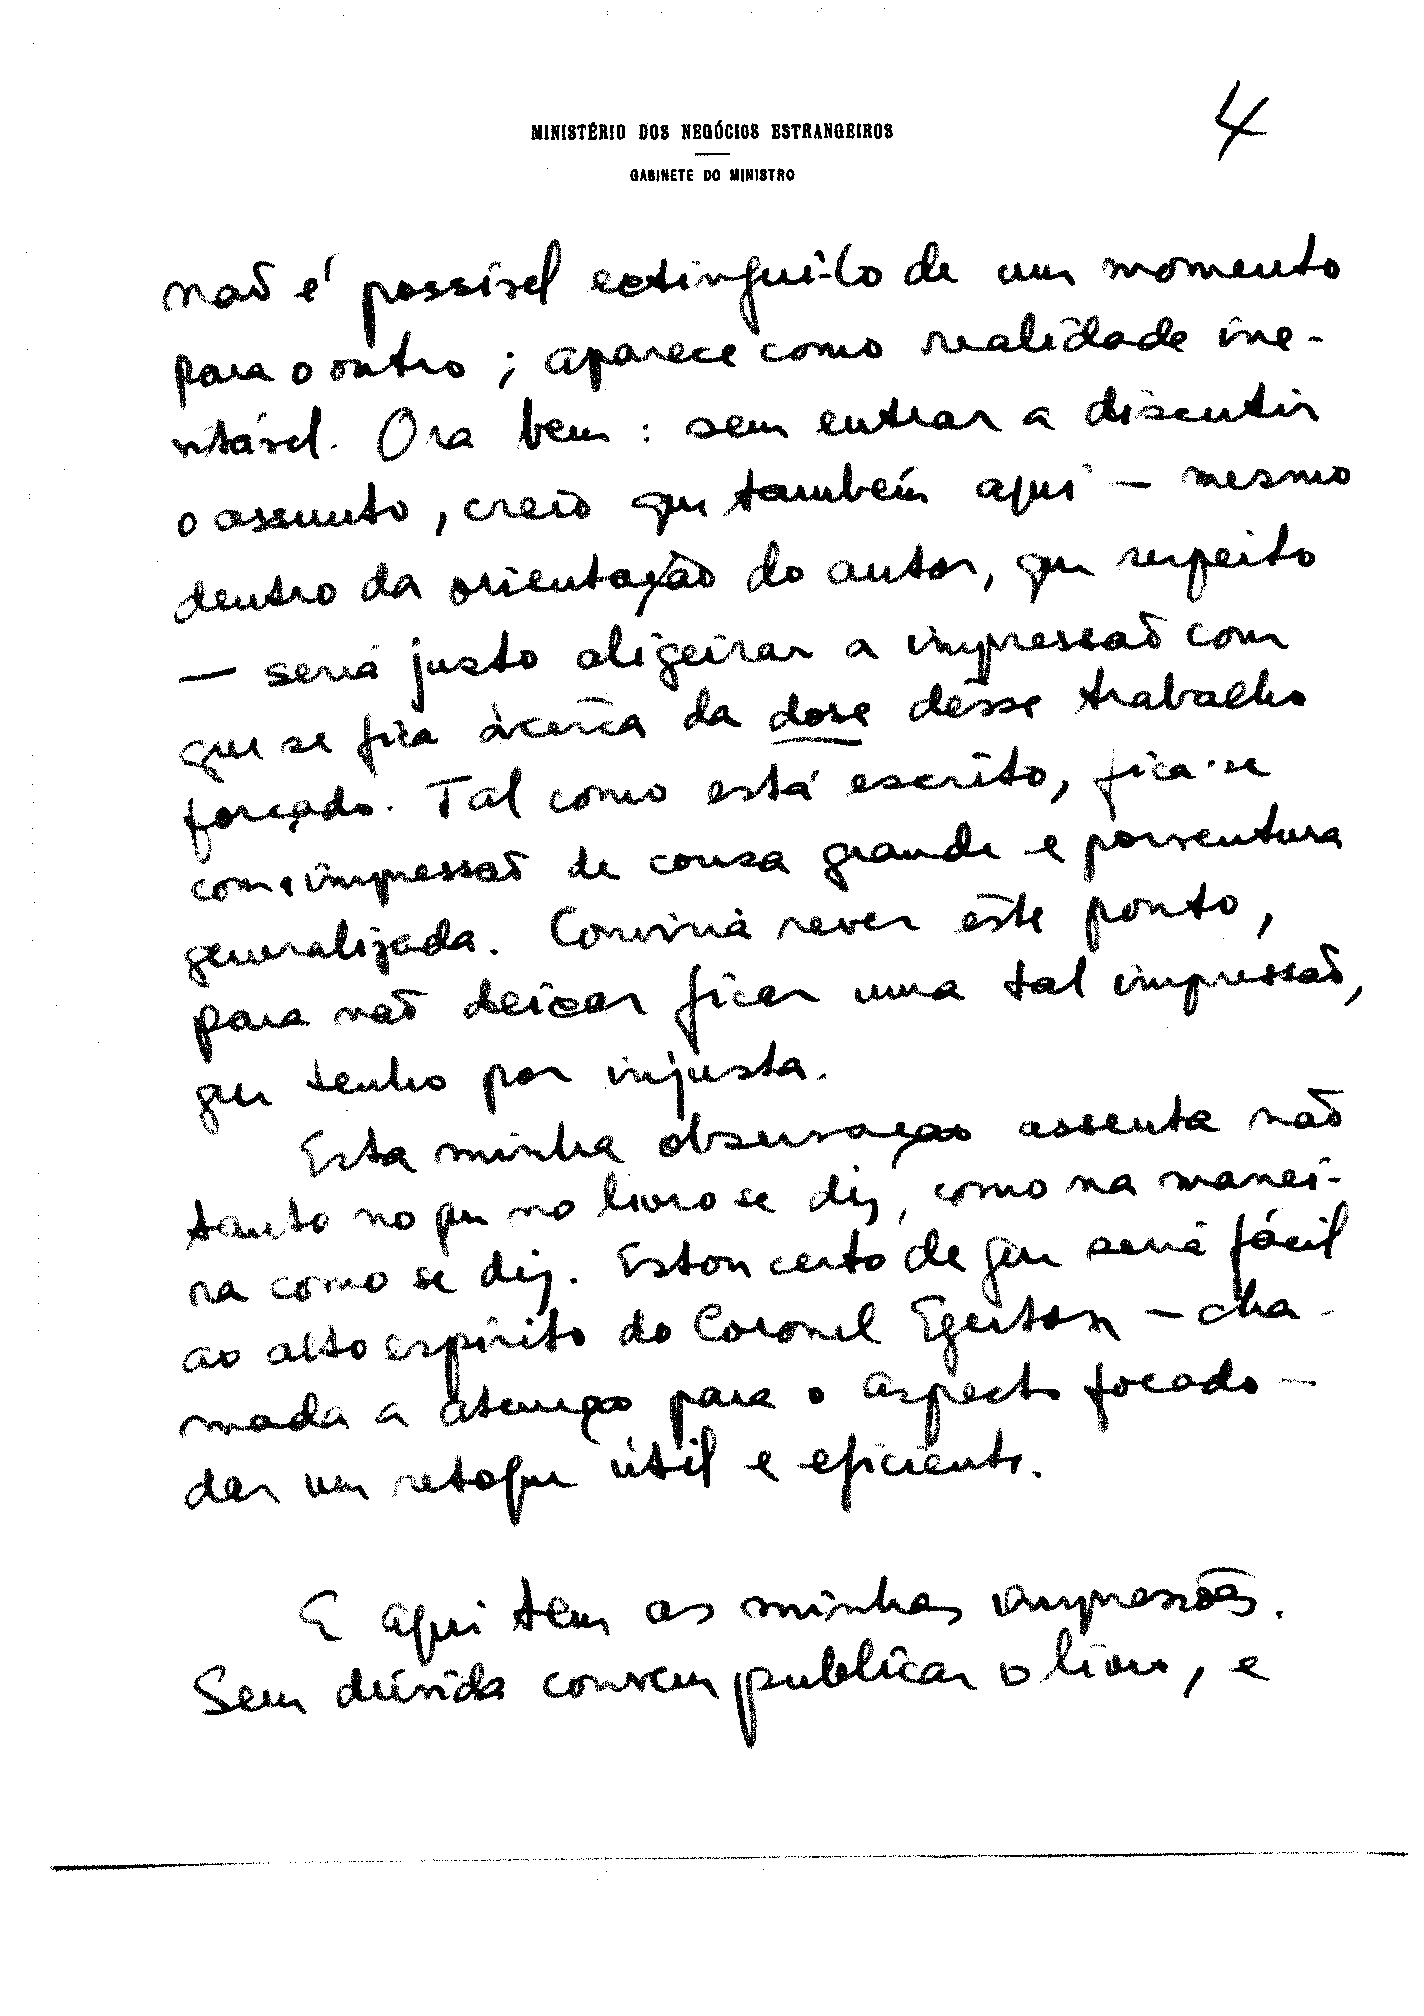 MINISTÉRIO DOS NEGÓCIOS ESTRANGEIROS
GABINETE DO MINISTRO
4
não é possível extingui-lo de um momento
para o outro; aparece como realidade ine-
vitável. Ora bem: sem entrar a discutir
o assunto, creio que também aqui — mesmo
dentro da orientação do autor, que respeito
— seria justo aligeirar a impressão com
que se fica àcêrca da dose dêsse trabalho
forçado. Tal como está escrito, fica-se
com a impressão de cousa grande e porventura
generalizada. Conviria rever êste ponto,
para não deixar ficar uma tal impressão,
que tenho por injusta.
Esta minha observação assenta não
tanto no que no livro se diz, como na manei-
ra como se diz. Estou certo de que seria fácil
ao alto espírito do Coronel Egerton — cha-
mada a atenção para o aspecto focado —
dar um retoque útil e eficiente.
E aqui tem as minhas impressões.
Sem dúvida convem publicar o livro, e